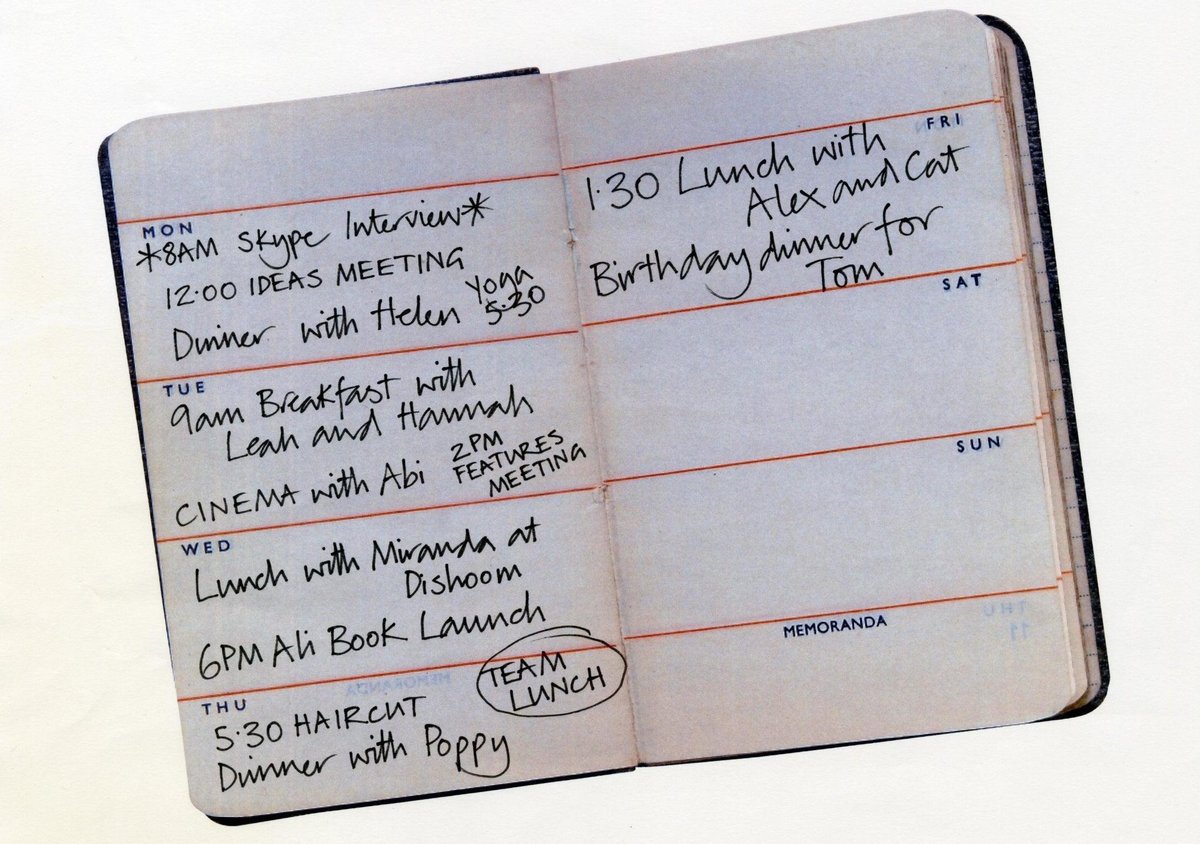 MON
*8AM Skype Interview*
12.00 IDEAS MEETING
Dinner with Helen
Yoga
5.30
TUE
9am Breakfast with
Leah and Hannah
CINEMA with Abi
2PM
FEATURES
MEETING
WED
Lunch with Miranda at
Dishoom
6PM Ali Book Launch
THU
TEAM
LUNCH
5.30 HAIRCUT
Dinner with Poppy
FRI
1.30 Lunch with
Alex and Cat
Birthday dinner for
Tom
SAT
SUN
MEMORANDA
THU
11
MEMORANDA